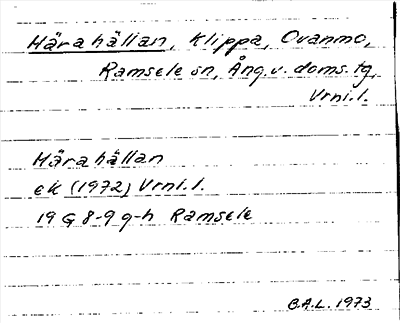 Härahällan, Klippa, Ovanmo,
Ramsele sn, Ång.v. doms.tg,
Vrnl.l.
Härahällan
ek (1972) Vrnl.l.
19 G 8-9 g-h Ramsele
B.A.L. 1973